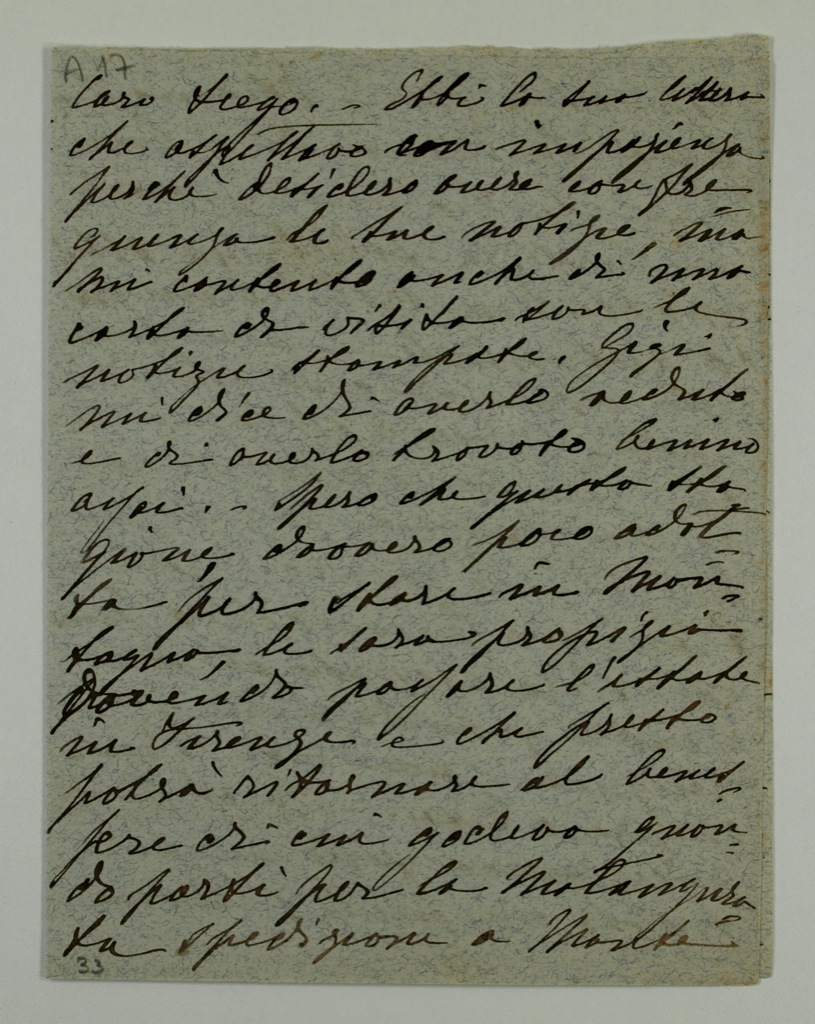 A 17
Caro Diego. - Ebbi la sua lettera
che aspettavo con impazienza
perchè desidero avere con fre=
quenza le sue notizie, ma
mi contento anche di una
carta da visita con le
notizie stampate. Gigi
mi dice di averlo veduto
e di averlo trovato benino
assai. - Spero che questa sta
gione, davvero poco adat=
ta per stare in Mon=
tagna, le sarà propizia
dovendo passare l'estate
in Firenze e che presto
potrà ritornare al benes=
sere di cui godeva quan=
do partì per la malaugura=
ta spedizione a Monte=
33